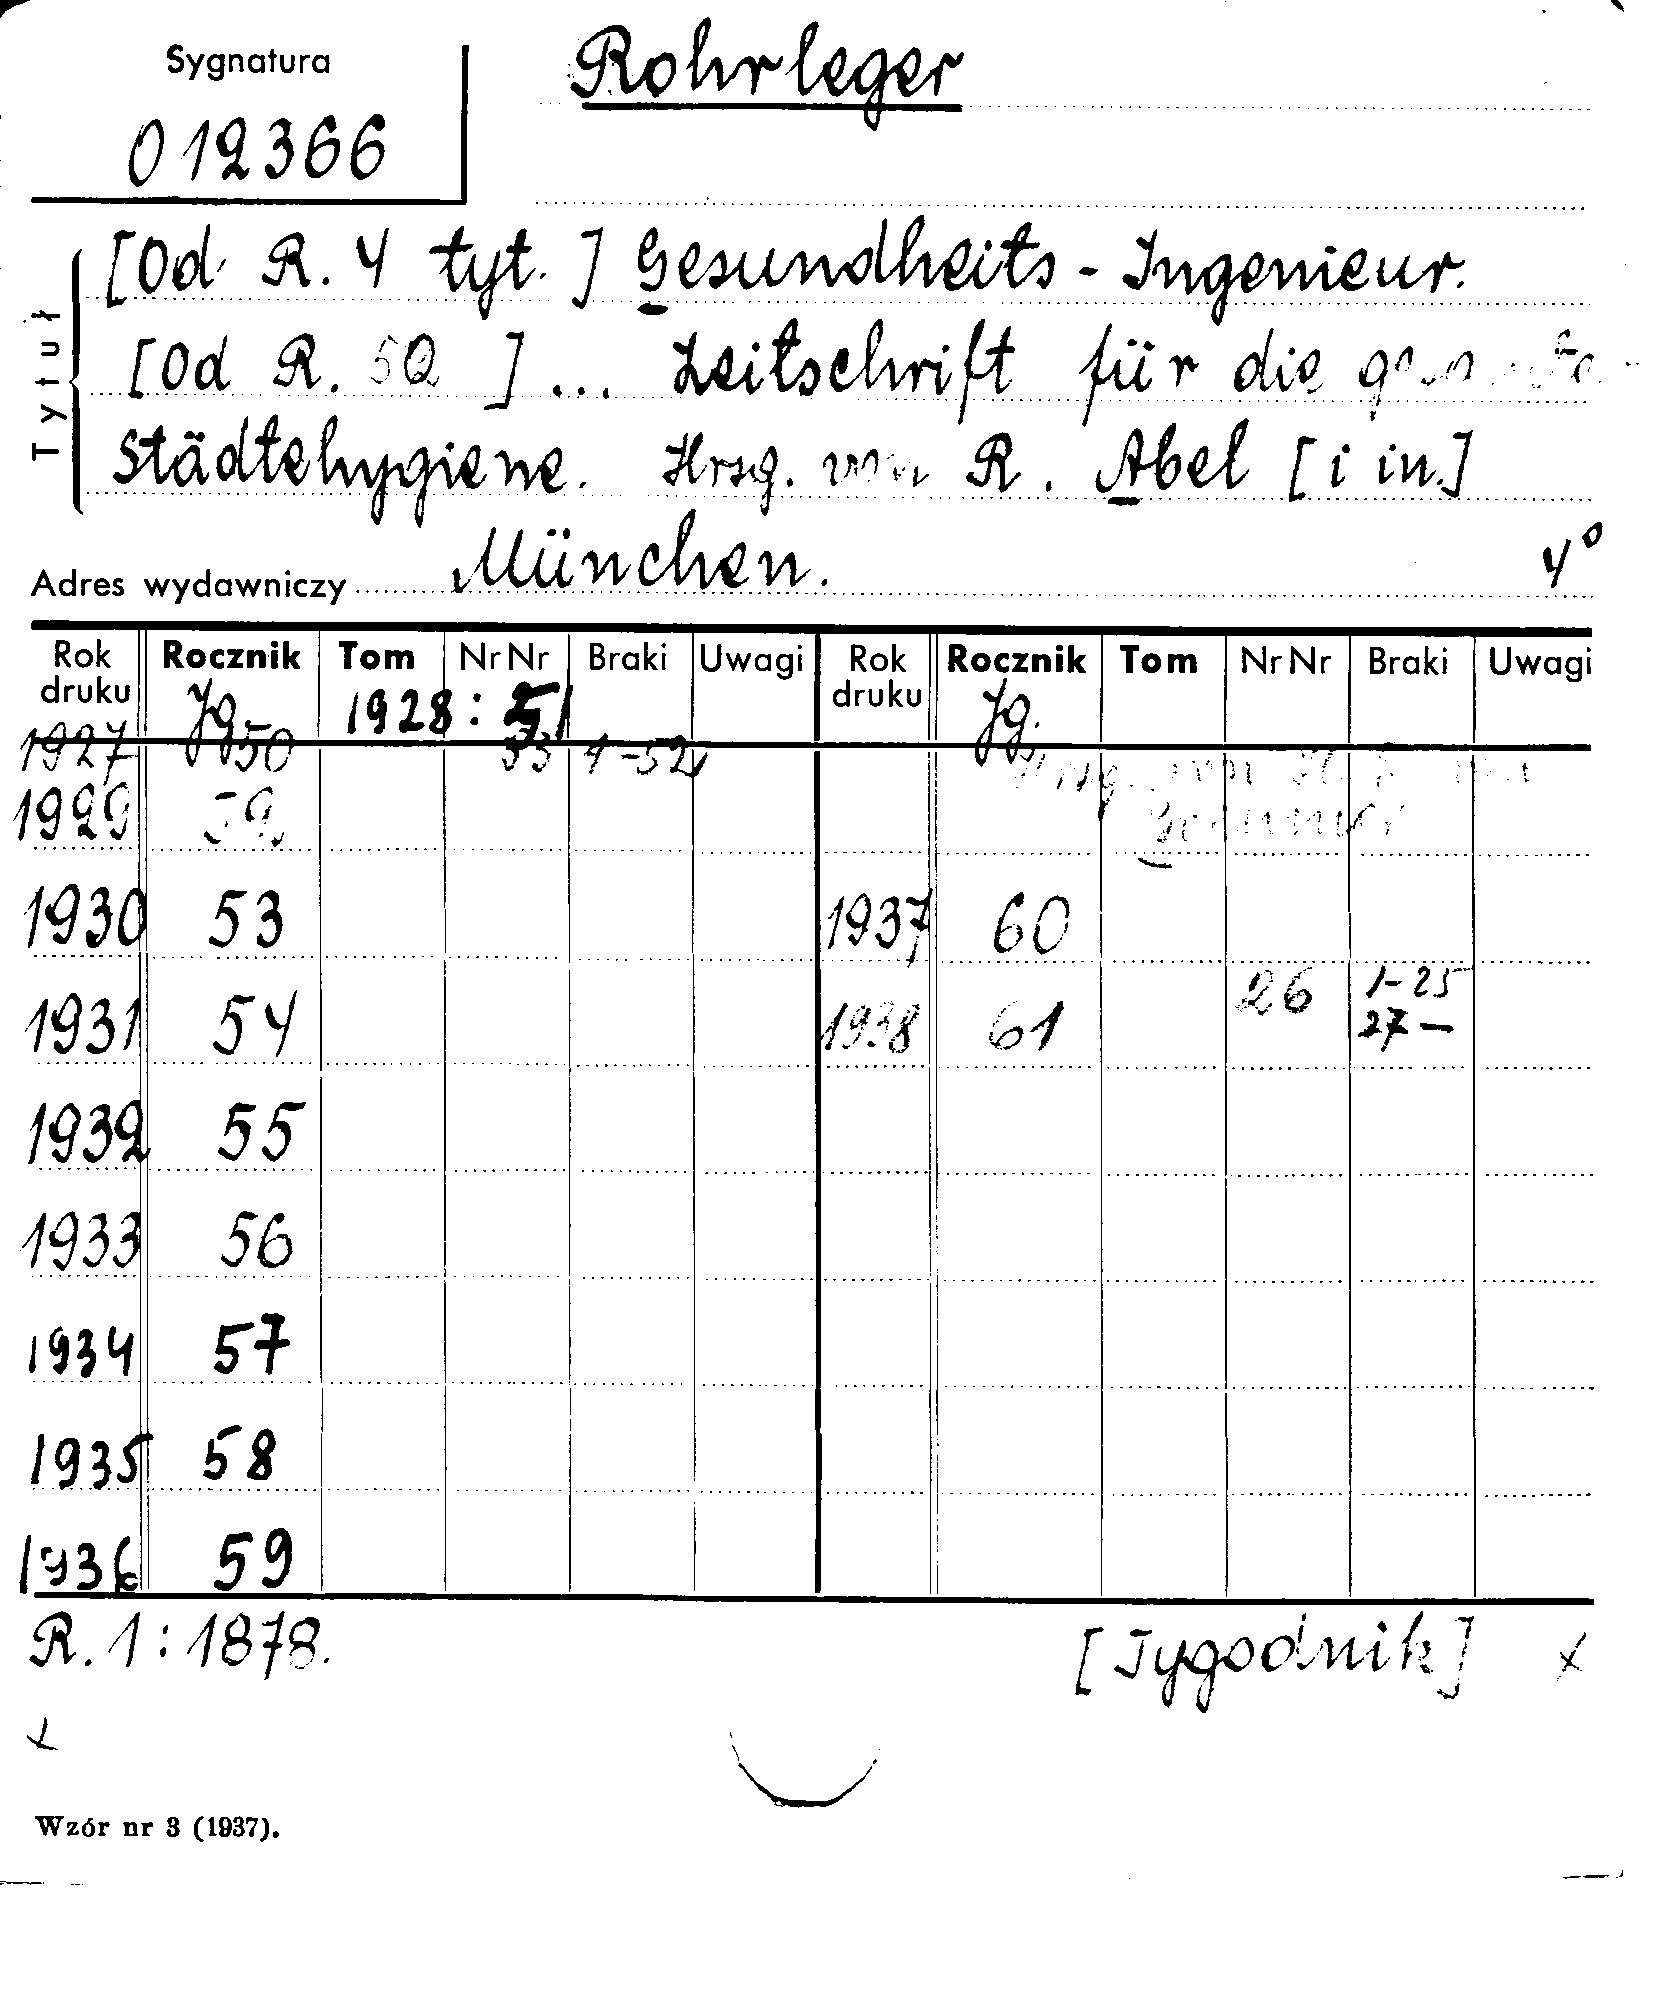 Sygnatura
012366
Rohrleger
Tytuł
[Od R. 4 tyt.] Gesundheits-Ingenieur.
[Od R. 50 ] ... Zeitschrift für die
Städtehygiene. Hrsg. von R. Abel [i in.]
Adres wydawniczy München. 4°
Rok druku Rocznik Tom NrNr Braki Uwagi Rok druku Rocznik Tom NrNr Braki Uwagi
Jg. 1928: 51 Jg.
1927 50 53 1-52
1929 52 Hrsg. von
1930 53 1937 60
1931 54 1938 61 26 1-25
27-
1932 55
1933 56
1934 57
1935 58
1936 59
R. 1: 1878. [Tygodnik] x
x
Wzór nr 3 (1937).